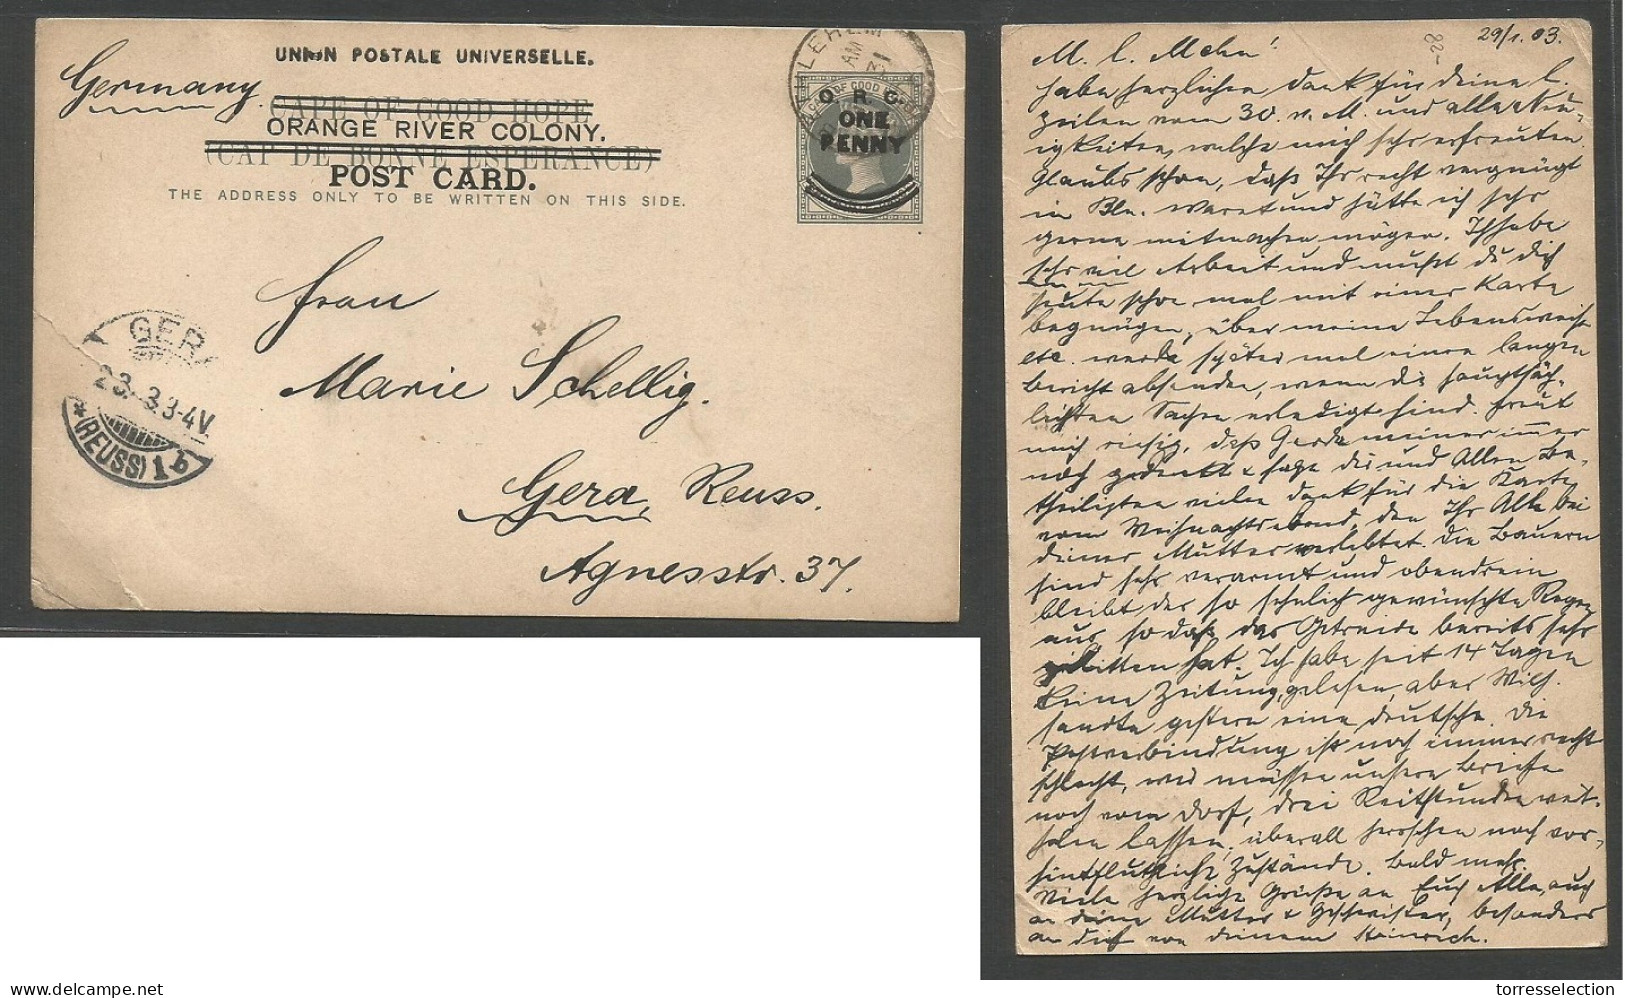 UNION POSTALE UNIVERSELLE.
Germany.
CAPE OF GOOD HOPE
ORANGE RIVER COLONY.
(CAP DE BONNE ESPERANCE)
POST CARD.
THE ADDRESS ONLY TO BE WRITTEN ON THIS SIDE.
HLEHEM
AM
CAPE OF GOOD HOPE
O. R. C.
ONE
PENNY
Frau
Marie Schellig.
Gera, Reuss.
Agnesstr. 37.
GERA
23. 3. 3-4V.
*(REUSS) 1b
29/1. 03.
M. l. Mchn!
Habe herzlichen Dank für Deine l.
Zeilen vom 30. v. M. und alle Neu-
igkeiten, welche mich sehr erfreuten.
Glaubs schon, daß Ihr recht vergnügt
in Bln. waret und hätte ich sehr
gerne mitmachen mögen. Ich habe
sehr viel Arbeit und mußt du dich
heute schon mal mit einer Karte
begnügen, über meine Lebensweise
etc. werde später mal einen langen
Bericht absenden, wenn die hauptsäch-
lichsten Sachen erledigt sind. Freut
mich riesig, daß Gerda meiner immer
noch gedenkt & sage Dir und Allen Be-
theiligten vielen Dank für die Karte
vom Weihnachtsabend, den Ihr Alle bei
Deiner Mutter verlebtet. Die Bauern
sind sehr verarmt und obendrein
bleibt der so sehnlich gewünschte Regen
aus, so daß das Getreide bereits sehr
gelitten hat. Ich habe seit 14 Tagen
keine Zeitung gelesen, aber Wilh.
sandte gestern eine deutsche. Die
Postverbindung ist noch immer recht
schlecht, wir müssen unsere Briefe
noch vom Dorf, drei Reitstunden weit,
holen lassen, überall herrschen noch vor-
sintfluthliche Zustände. Bald mehr.
Viele herzliche Grüße an Euch Alle, auch
an Deine Mutter & Geschwister, besonders
an Dich von Deinem Heinrich.
torresselection